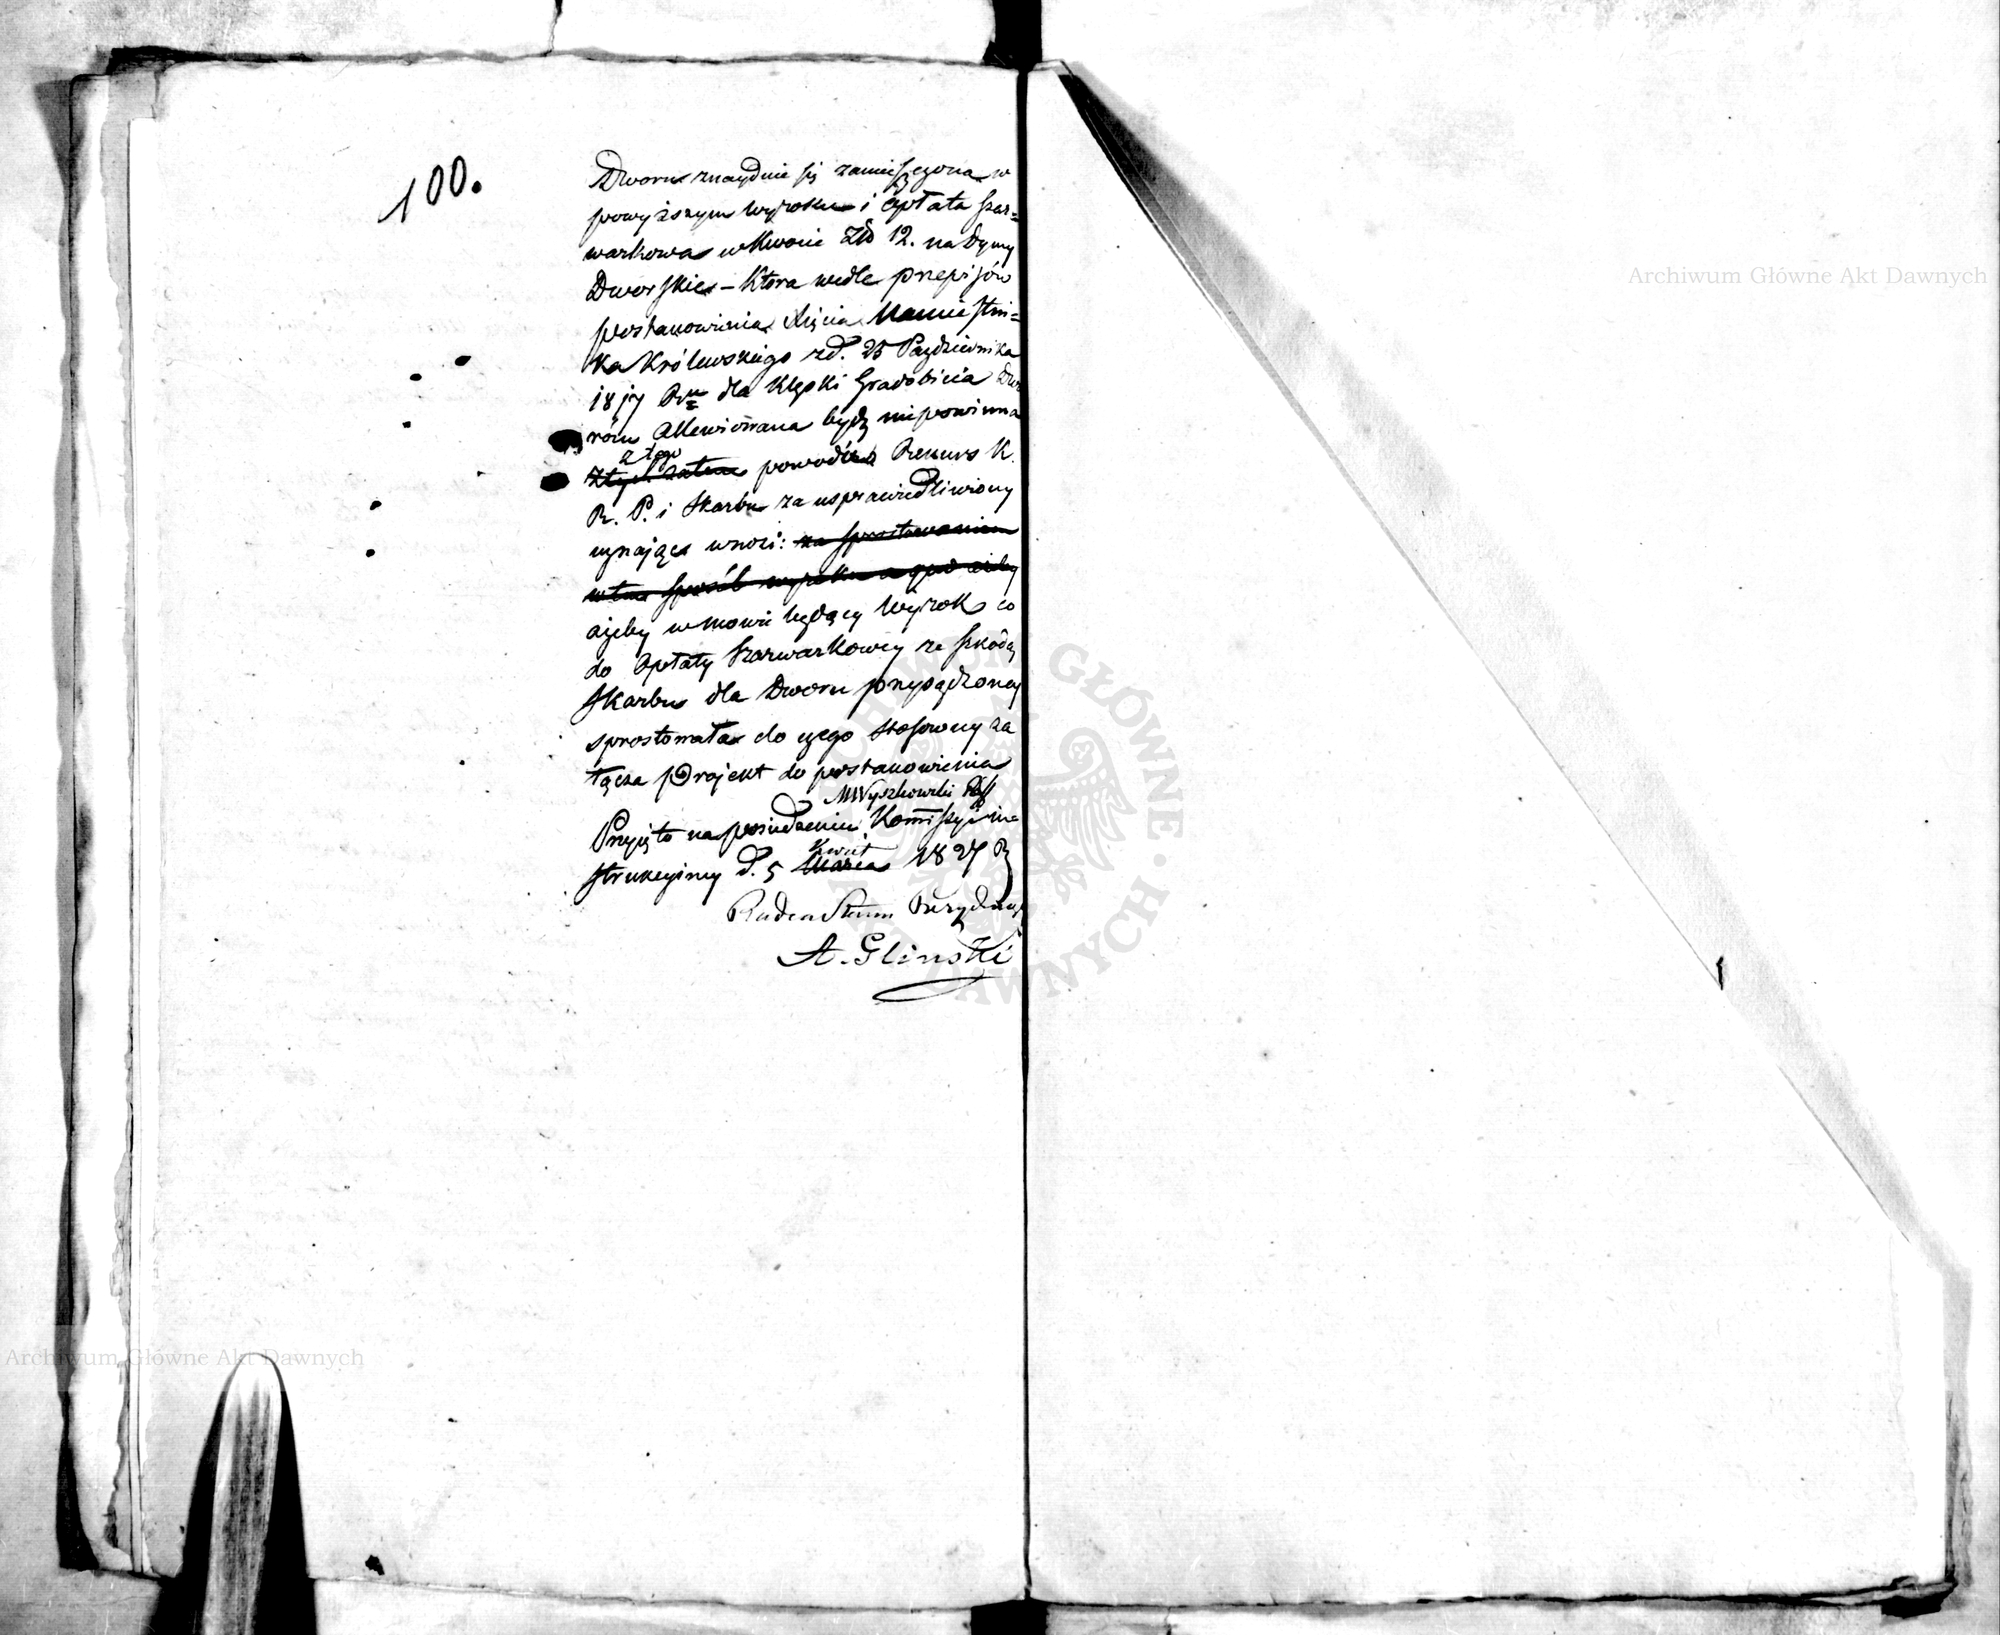 100.
Dworu znayduie się zamieszczona w
powyższym Wyroku i Opłata szar=
warkowa w kwocie Złp 12. na Dymy
Dworskie – która wedle przepisów
postanowienia Xięcia Namiestni=
ka Królewskiego z d. 25 Października
1817 Ru dla klęski Gradobicia Dwo
rów allewiowana bydź niepowinna
z tego
z tych zatem powodów Rekurs K.
R. P. i Skarbu za usprawiedliwiony
uznając wnosi: za sprostowaniem
w tem sposób wyroku a quo ażeby
ażeby w mowie będący Wyrok co
do Opłaty Szarwarkowey ze szkodą
Skarbu dla Dworu przysądzoney
sprostowała do czego stosowny za
łącza projekt do postanowienia
MWyszkowski
Przyięto na posiedzeniu Kommissyi in=
strukcyiney d. 5 Marca 1827 R
Kwiet
Radca Stanu Prezyduiący
A. Glinski
Archiwum Główne Akt Dawnych
Archiwum Główne Akt Dawnych
ARCHIWUM GŁÓWNE AKT DAWNYCH